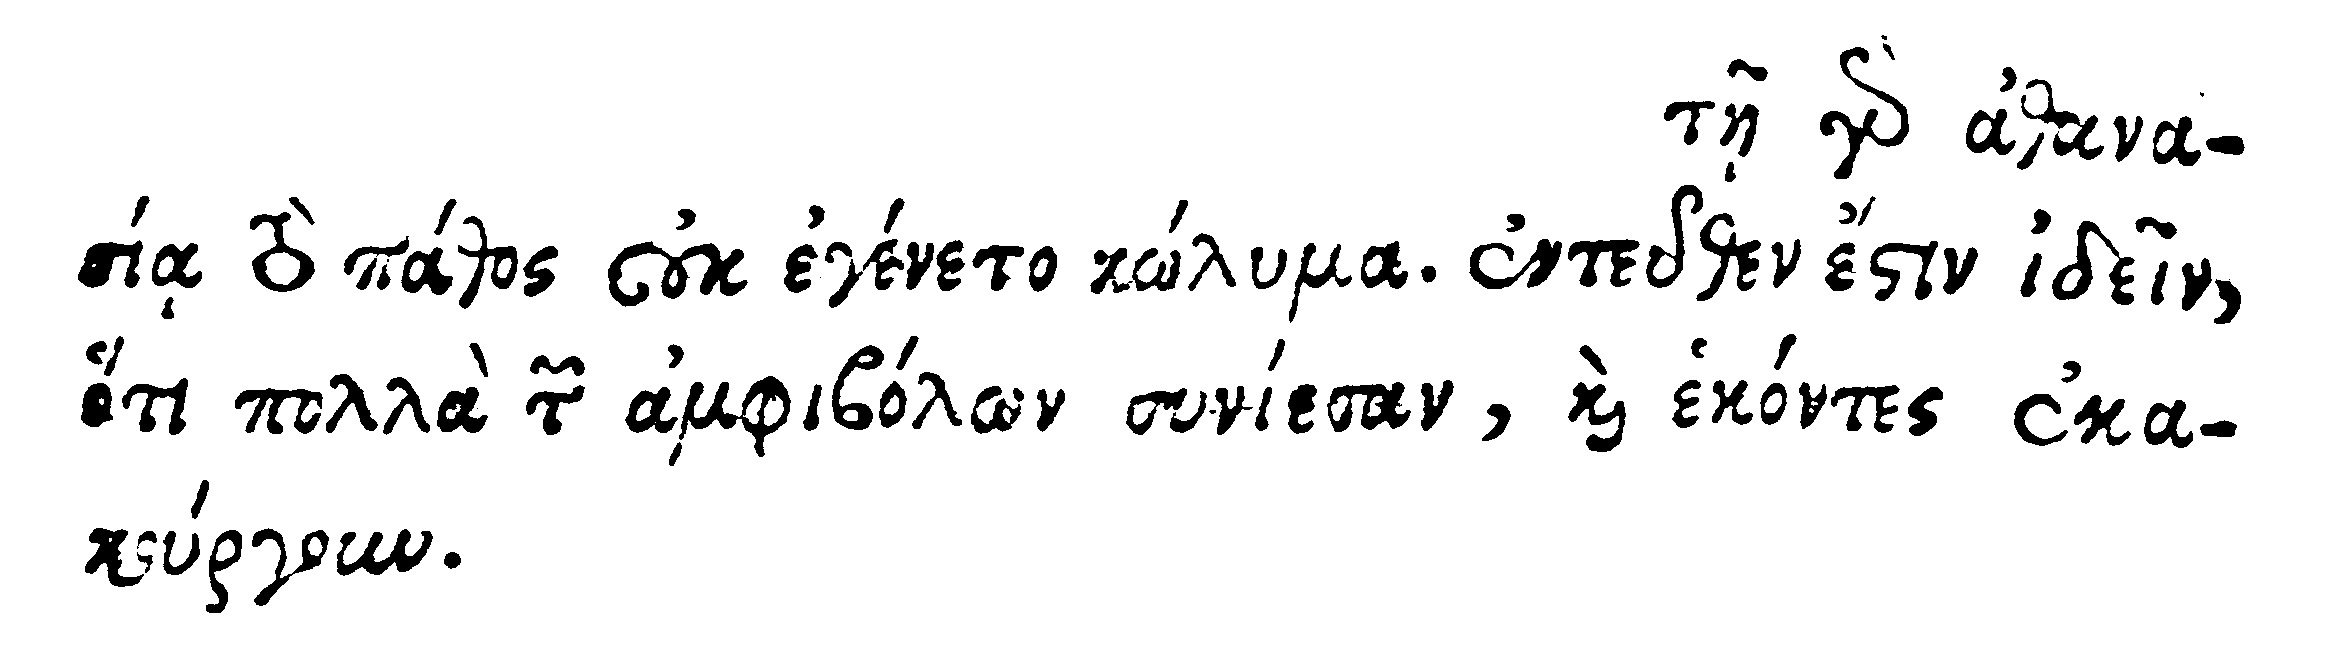 τῇ γὰρ ἀθανα-
σίᾳ τὸ πάθος οὐκ ἐγένετο κώλυμα. ἐντεῦθεν ἔστιν ἰδεῖν,
ὅτι πολλὰ τῶν ἀμφιβόλων συνίεσαν, καὶ ἑκόντες ἐκα-
κούργουν.